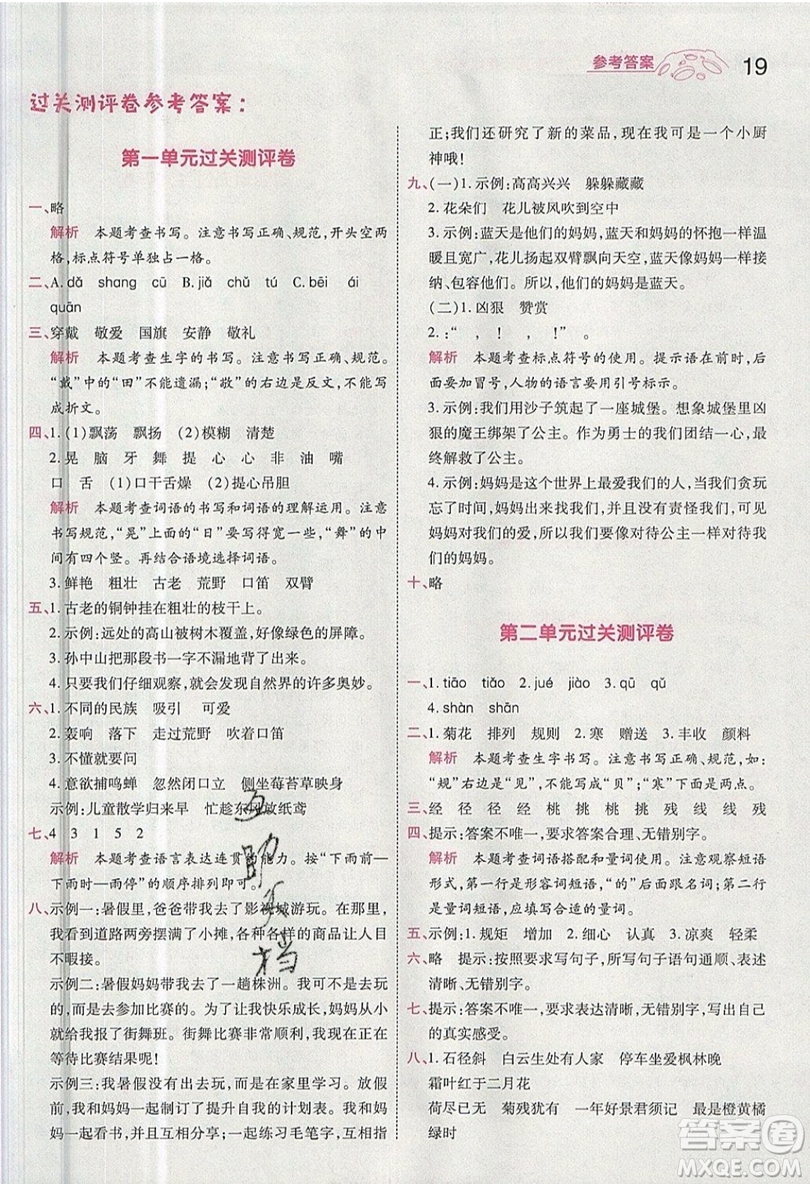 参考答案 19
过关测评卷参考答案：
第一单元过关测评卷
一、略
解析 本题考查书写。注意书写正确、规范，开头空两
格，标点符号单独占一格。
二、A.dǎ shang cū B.jiǎ chā C.bēi ái
quān
三、穿戴 敬爱 国旗 安静 敬礼
解析 本题考查生字的书写。注意书写正确、规范。
“戴”中的“田”不能遗漏；“敬”的右边是反文，不能写
成折文。
四、1.(1)飘荡 飘扬 (2)模糊 清楚
2.晃 脑 牙 舞 提 心 非 油 嘴
口 舌 (1)口干舌燥 (2)提心吊胆
解析 本题考查词语的书写和词语的理解运用。注意
书写规范，“晃”上面的“日”要写得宽一些，“舞”的中
间有四个竖。再结合语境选择词语。
3.鲜艳 粗壮 古老 荒野 口笛 双臂
五、1.古老的铜钟挂在粗壮的枝干上。
2.示例：远处的高山被树木覆盖，好像绿色的屏障。
3.孙中山把那段书一字不漏地背了出来。
4.只要我们仔细观察，就会发现自然界的许多奥妙。
六、1.不同的民族 吸引 可爱
2.轰响 落下 走过荒野 吹着口笛
3.不懂就要问
4.意欲捕鸣蝉 忽然闭口立 侧坐莓苔草映身
示例：儿童散学归来早 忙趁东风放纸鸢
七、4 3 1 5 2
解析 本题考查语言表达连贯的能力。按“下雨前—
下雨时—雨停”的顺序排列即可。
八、示例一：暑假里，爸爸带我去了影视城游玩。在那里，
我看到道路两旁摆满了小摊，各式各样的商品让人目
不暇接。
示例二：暑假里妈妈带我去了一趟株洲。我可不是去
玩的，而是去参加比赛的。为了让我快乐成长，妈妈
给我报了街舞班。街舞比赛非常顺利，我和妈妈还在
等待比赛成绩呢！
示例三：我暑假没有出去玩，而是在家里度过的。放假
前，我和妈妈一起制订了提升自我的计划表。我和妈
妈一起看书、一起做运动、一起练习毛笔字，其乐融融。
互助文档
正；我们还研究了新的菜品，现在我可是一个小厨
神哦！
九、(一)1.示例：高高兴兴 躲躲藏藏
2.花朵们 花儿被风吹到空中
3.示例：蓝天是他们的妈妈，蓝天和妈妈的怀抱一样温
暖且宽广，花儿扬起双臂飘向天空，就像花儿在迎
接、包容他们。所以，花儿的妈妈是蓝天。
(二)1.凶狠 赞赏
2.：“ ，！ ，！”。
解析 本题考查标点符号的使用。提示语在前时，后
面要加冒号，人物的语言要用引号标示。
3.示例：我们用沙子筑起了一座城堡。想象城堡里凶
狠的魔王绑架了公主。作为勇士的我们找到了公主，
并解救了她。
4.示例：妈妈是这个世界上最爱我们的人，当我贪玩
忘记时间时，妈妈出来找我，并且没有责怪我们，可见
妈妈对我们的爱，所以我们要像对待公主一样对待我
们的妈妈。
十、略
第二单元过关测评卷
一、1.tiāo tiǎo 2.jué jiào 3.qū qǔ
4.shàn shān
二、1.菊花 排列 规则 2.寒 赠送 3.丰收 颜料
解析 本题考查生字书写。注意书写正确、规范，如：
“规”右边是“见”，不能写成“贝”；“寒”下面的两点不
能遗漏。
三、经 径 径 经 桃 挑 桃 挑 残 线 线 残
四、提示：答案不唯一，要求答案合理、无错别字。
解析 本题考查词语搭配和量词运用。注意观察短语
形式，第一行是形容词短语，“的”后面跟名词；第二行
是量词短语，应填写合适的量词。
五、示例：1.规矩 增加 2.细心 认真 3.凉爽 轻柔
六、略 提示：按照要求写句子，所写句子语句通顺、表述
清晰、无错别字。
七、提示：答案不唯一，要求表达清晰、无错别字，写出自己
的真实感受。
八、1.石径斜 白云生处有人家 停车坐爱枫林晚
霜叶红于二月花
荷尽已无 菊残犹有 一年好景君须记 最是橙黄橘
绿时
答案圈
MXQE.COM